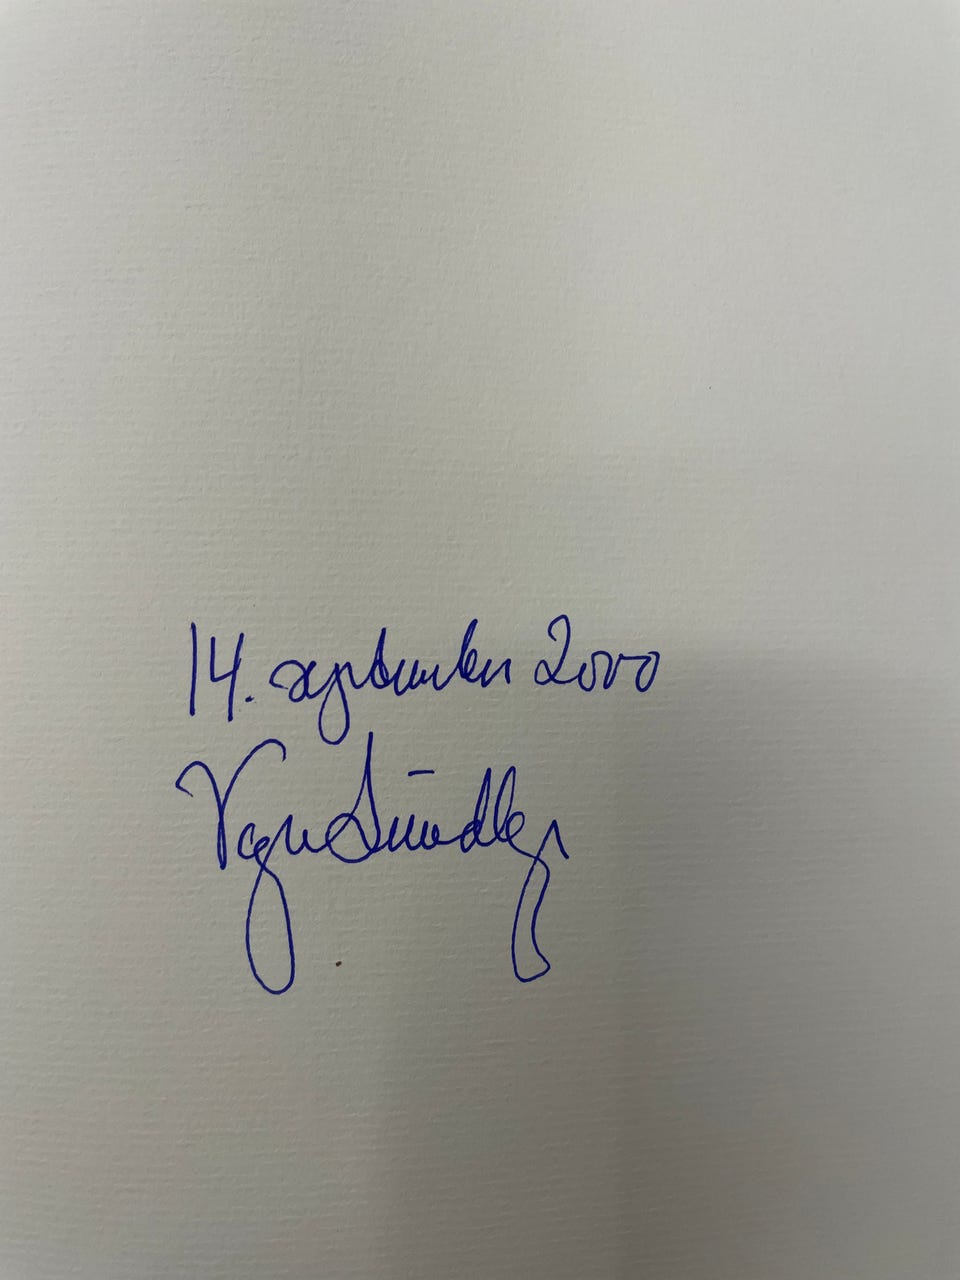 14. september 2000
Vagn